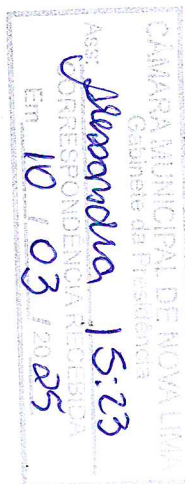 CÂMARA MUNICIPAL DE NOVA LIMA
Gabinete da Presidência
Ass: Alessandra 15:23
CORRESPONDÊNCIA RECEBIDA
Em 10 / 03 / 2025